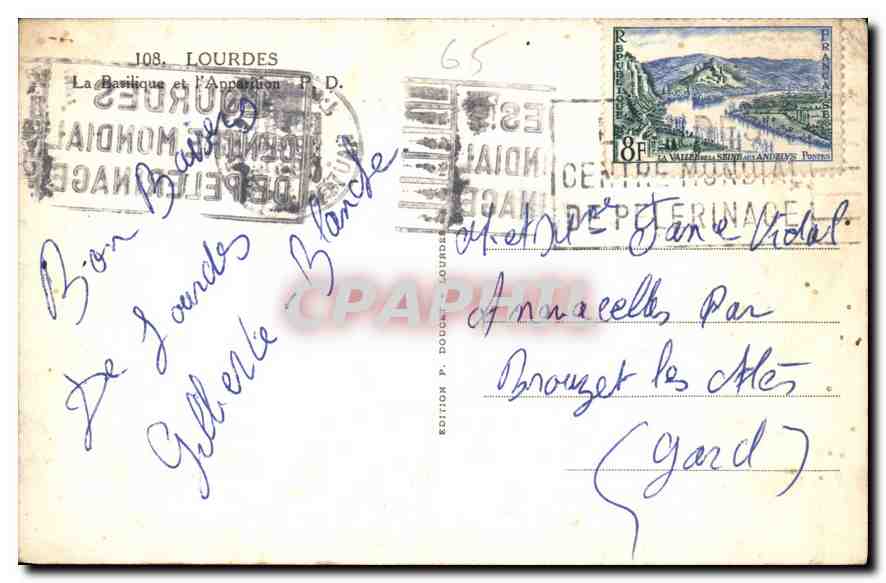 108. LOURDES
La Basilique et l'Apparition P. D.
65
REPUBLIQUE FRANÇAISE
8F
LA VALLEE DE LA SEINE AUX ANDELYS POSTES
CENTRE MONDIAL
DE PELERINAGE !
LOURDES
CENTRE MONDIAL
DE PELERINAGE
Bon Baisers
De Lourdes
Gilberte Blanche
EDITION P. DOUCET LOURDES
CPAPHIL
M et Mme Vidal
par
Brouzet les Alès
(Gard)